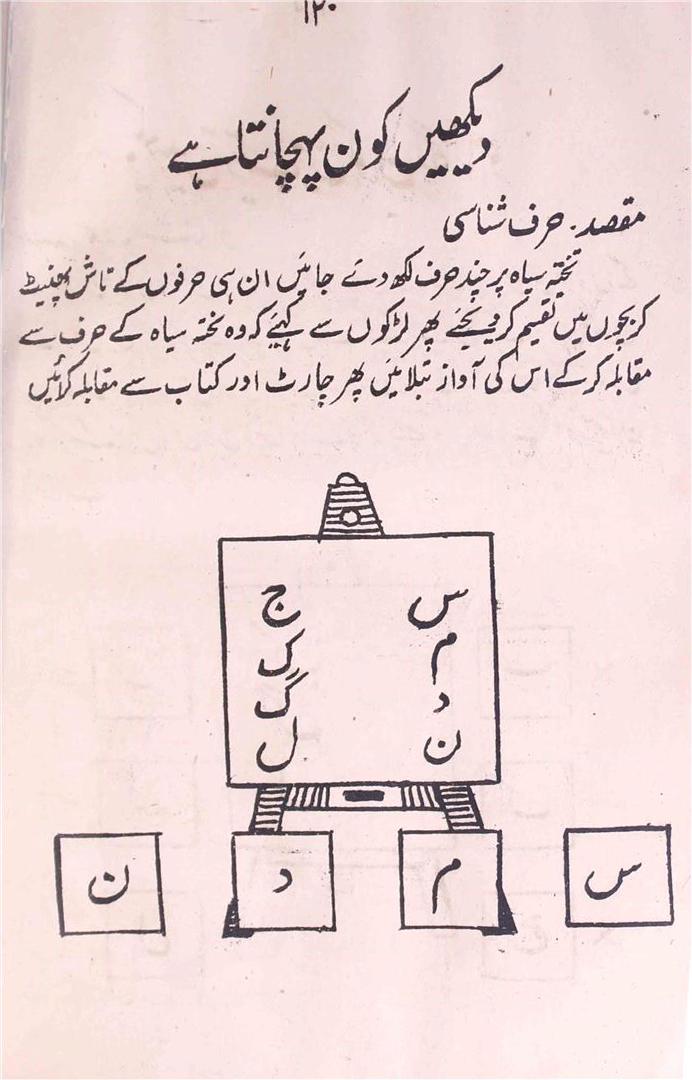 ۱۲۰
دیکھیں کون پہچانتا ہے
مقصد۔ حرف شناسی
تختہ سیاہ پر چند حرف لکھ دئے جائیں ان ہی حرفوں کے تاش پھینٹ
کر بچوں میں تقیم کر دیجئے پھر لڑکوں سے کہیئے کہ وہ تختہ سیاہ کے حرف سے
مقابلہ کر کے اس کی آواز تبلائیں پھر چارٹ اور کتاب سے مقابلہ کرائیں
س ج
م ک
د گ
ن ل
س م د ن